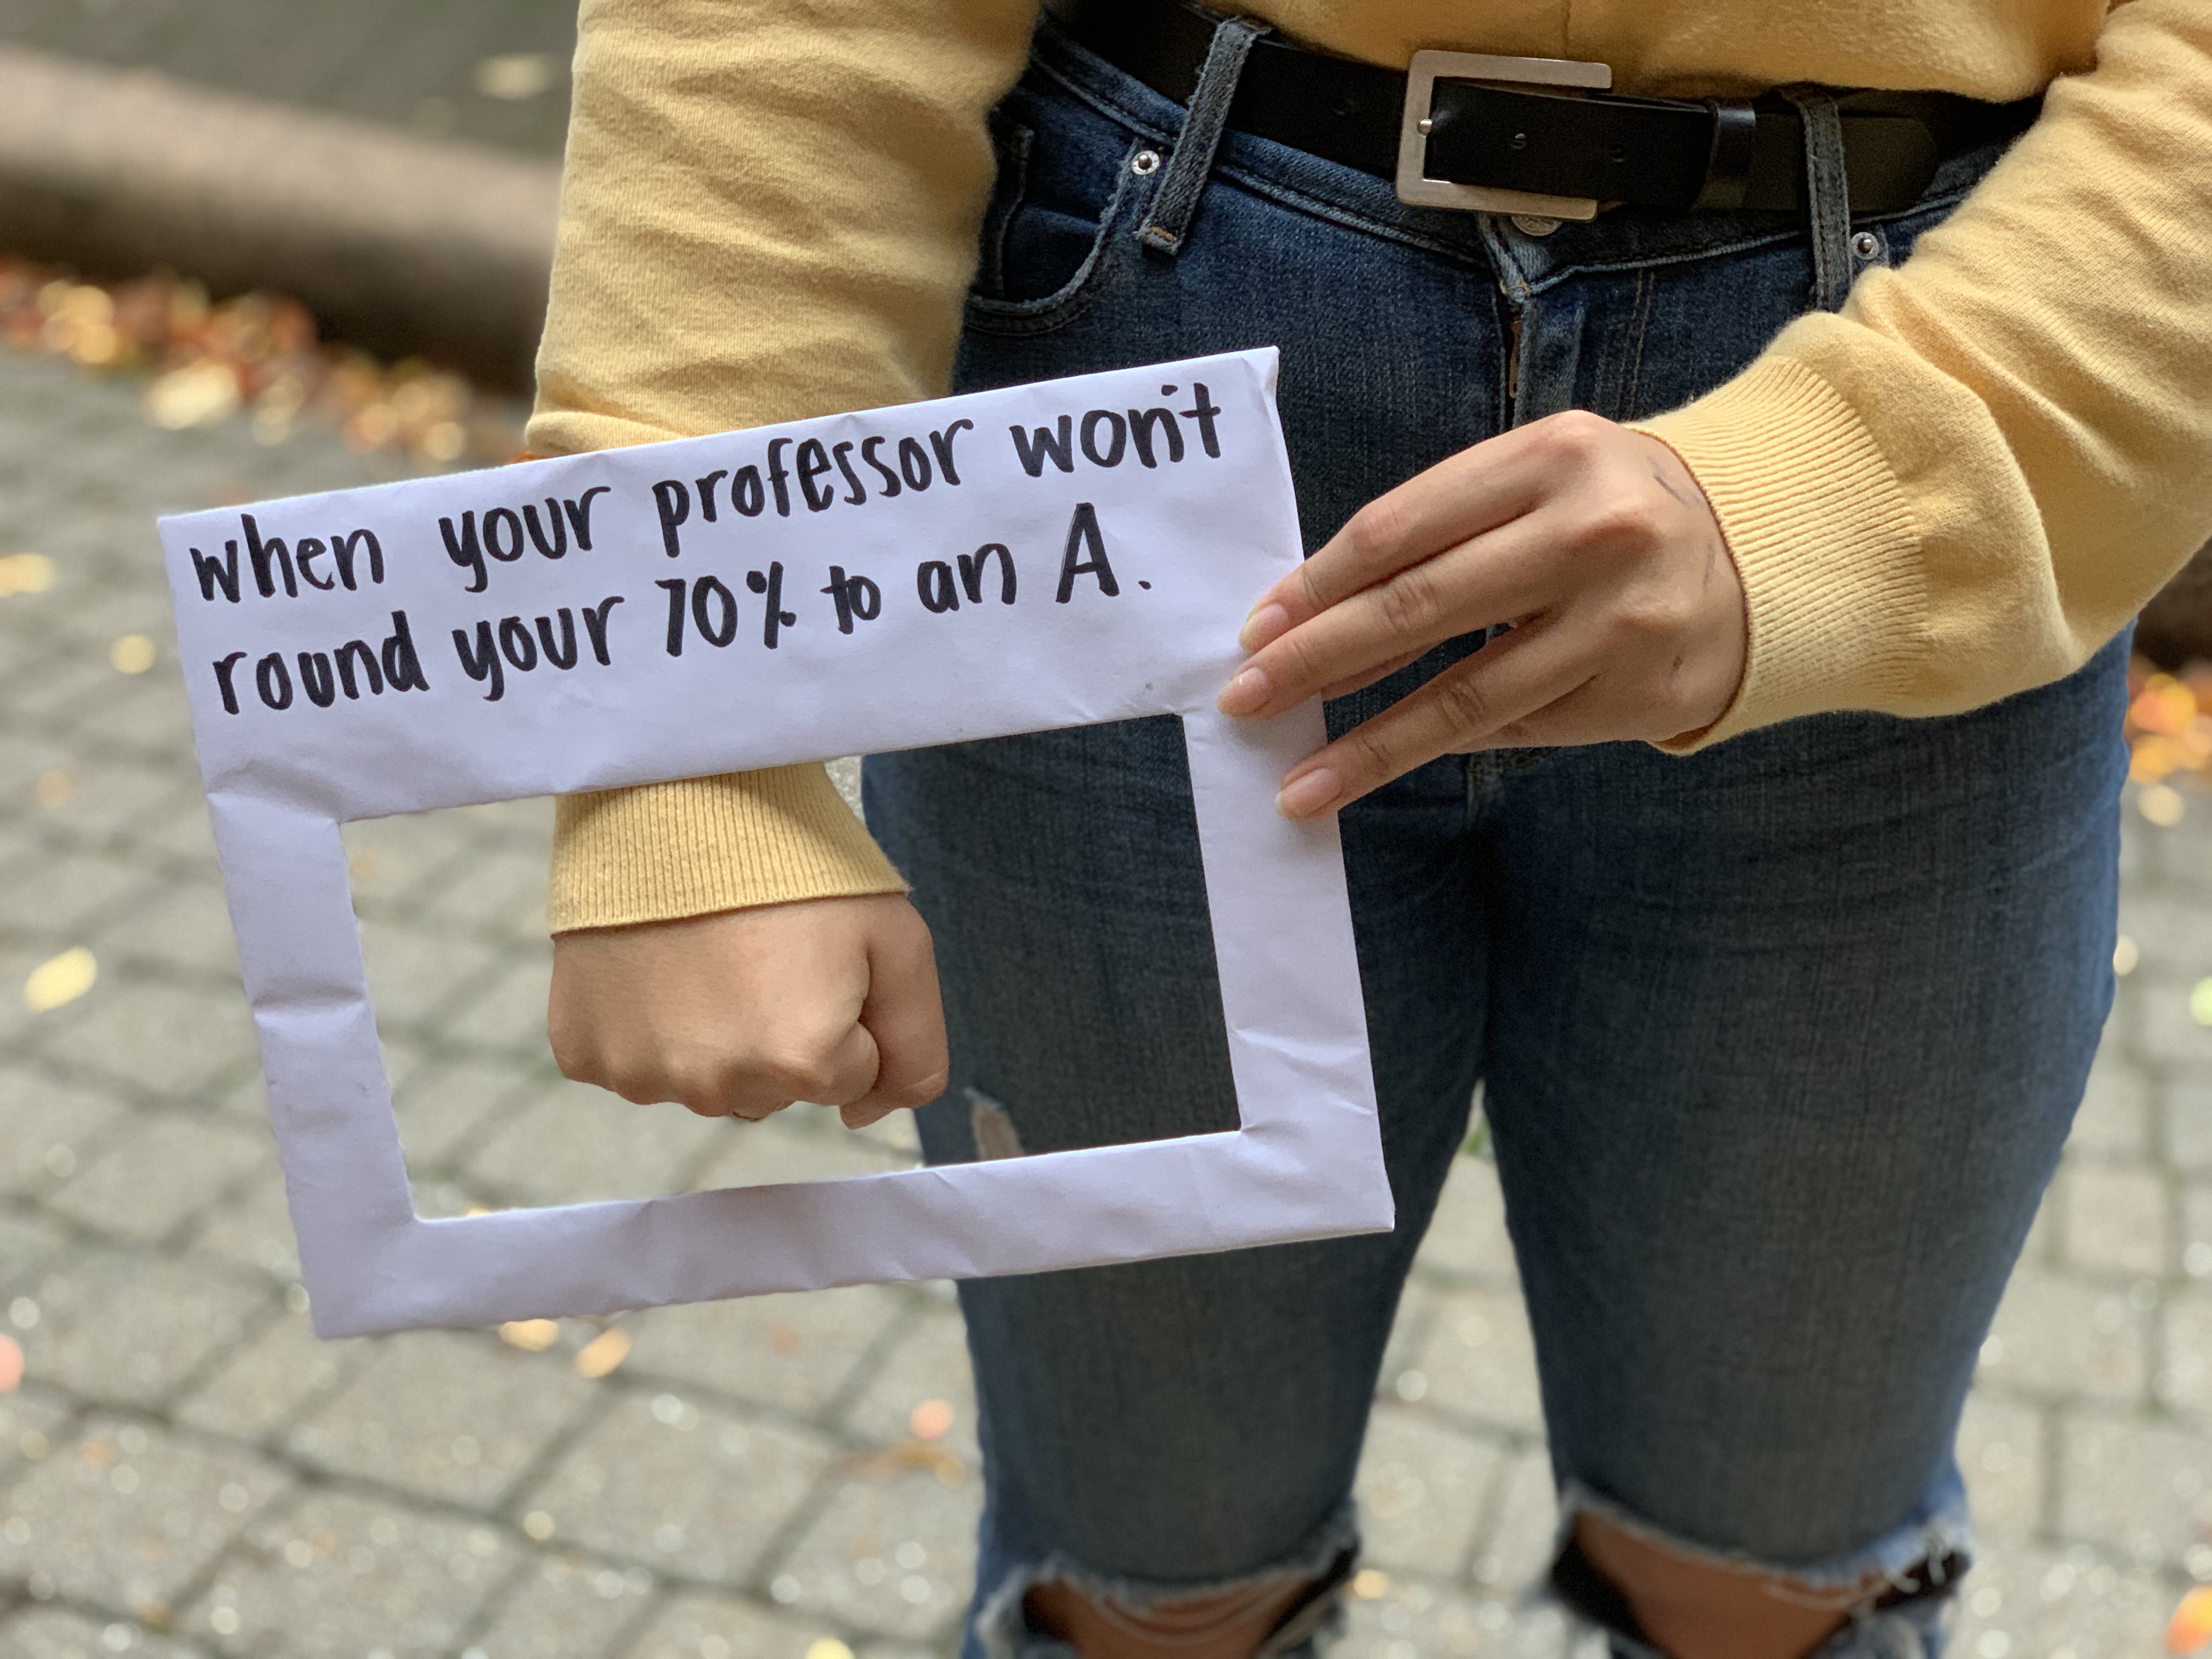 when your professor won't
round your 70% to an A.